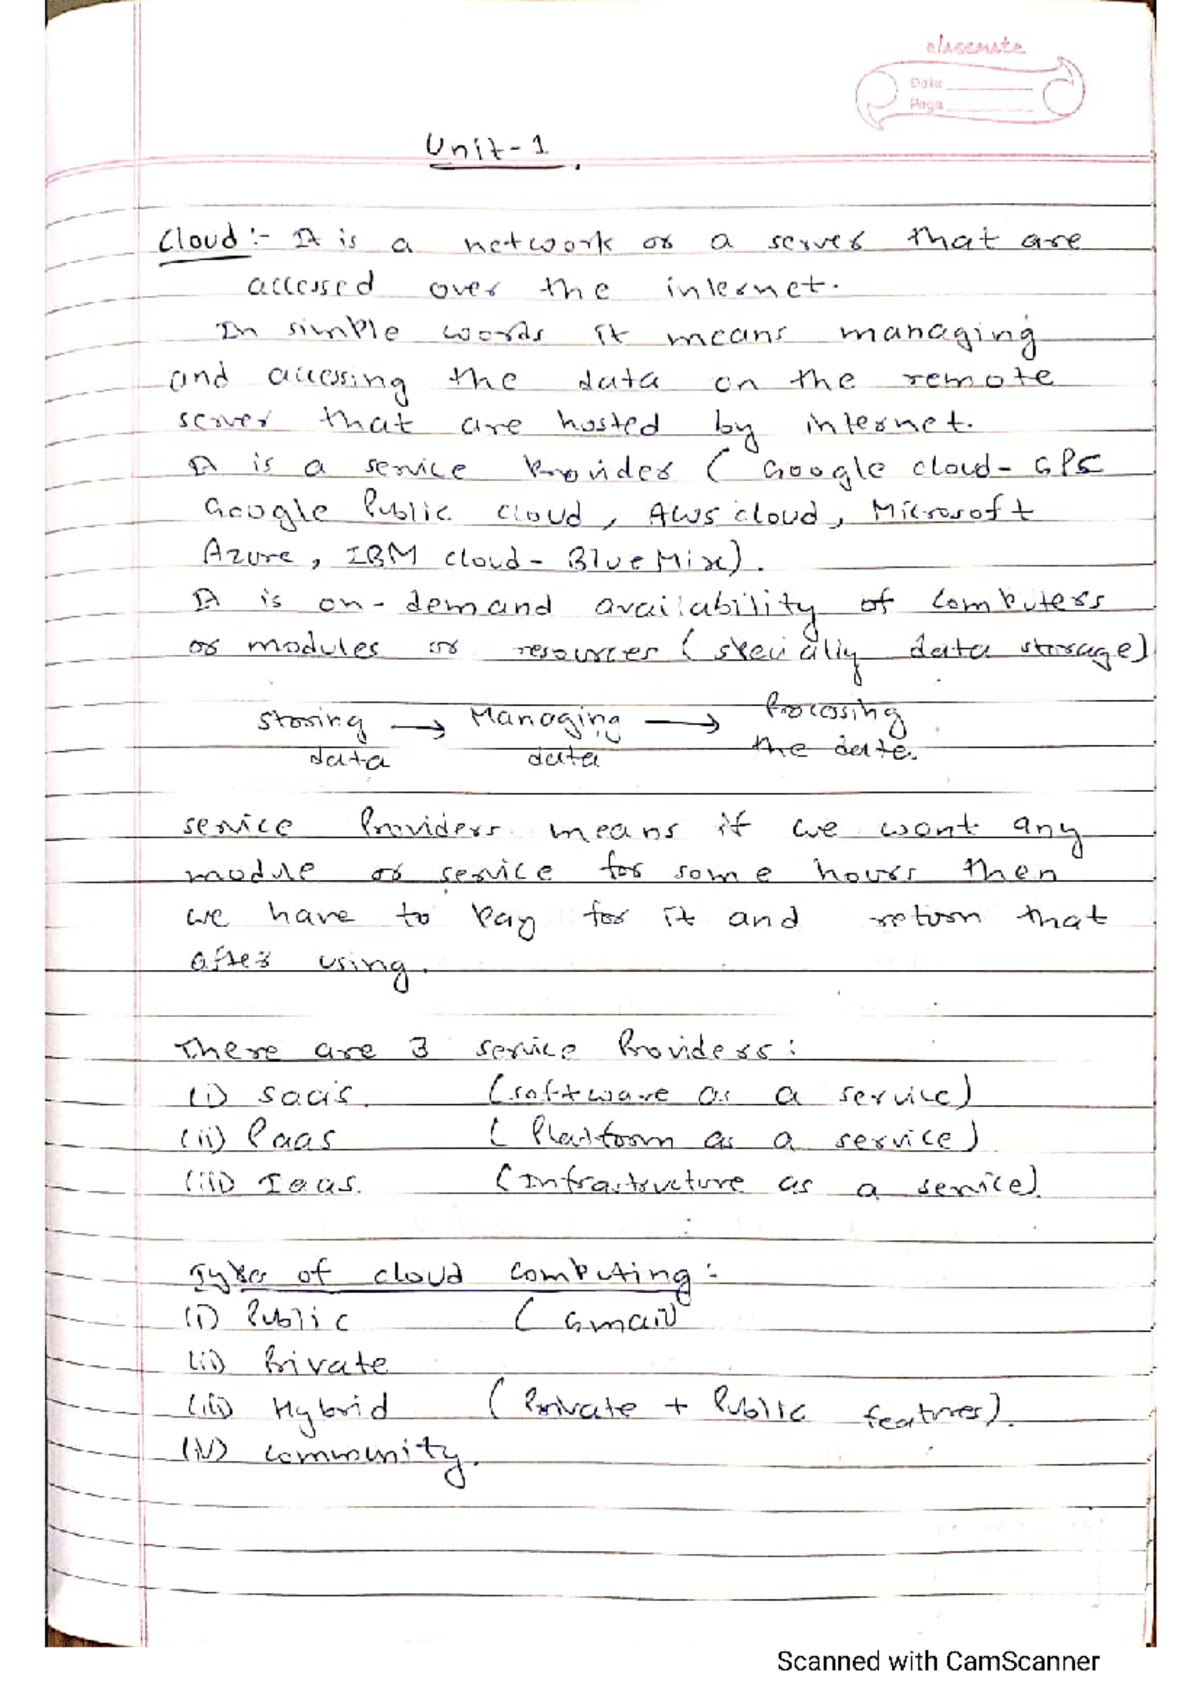 classmate
Date
Page
Unit-1
Cloud :- It is a network or a server that are
accessed over the internet.
In simple words it means managing
and accessing the data on the remote
server that are hosted by internet.
It is a service Provider ( Google cloud- GPC
Google Public cloud, AWS cloud, Microsoft
Azure, IBM cloud- BlueMix).
It is on-demand availability of computers
or modules or resources ( specially data storage)
Storing → Managing → Processing
data data the data.
service Providers means if we want any
module or service for some hours then
we have to pay for it and return that
after using.
There are 3 service Providers:
(i) Saas. (software as a service)
(ii) Paas ( Platform as a service)
(iii) Iaas. (Infrastructure as a service).
Types of cloud computing:
(i) Public ( Gmail)
(ii) Private
(iii) Hybrid ( Private + Public features).
(iv) community.
Scanned with CamScanner